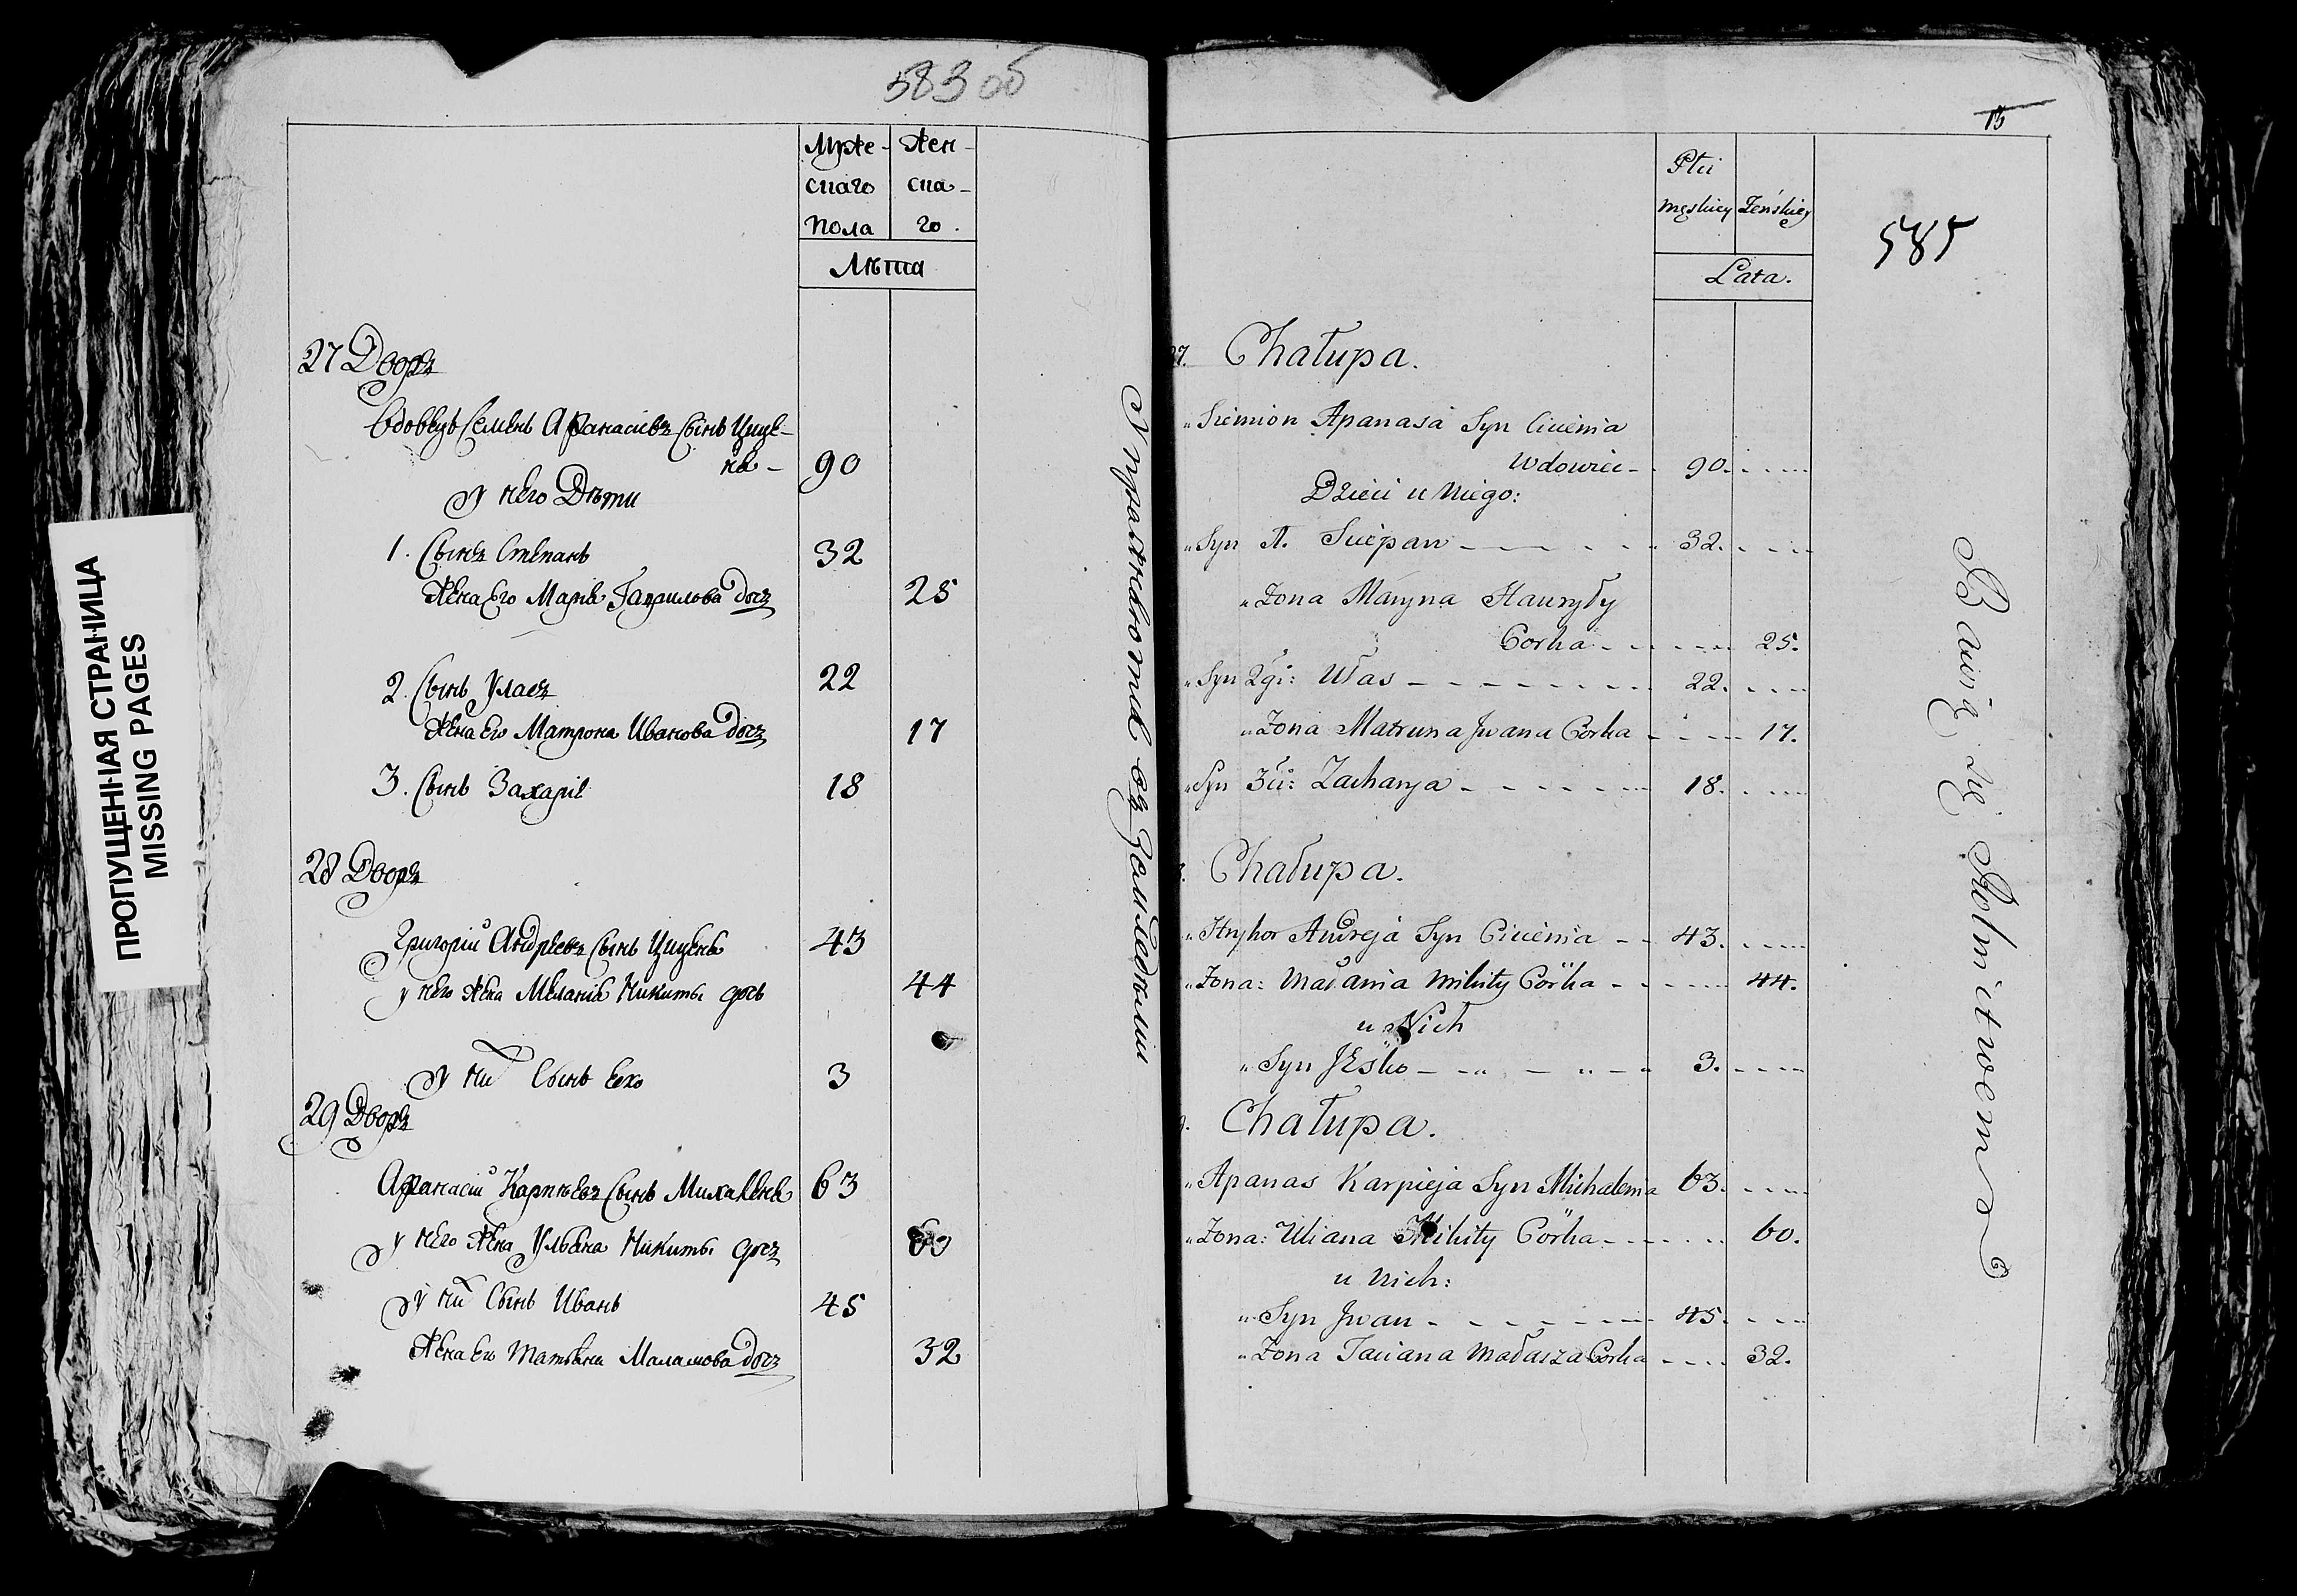 ПРОПУЩЕННАЯ СТРАНИЦА
MISSING PAGES
583 об
Муже- Жен-
скаго ска-
пола го.
Лѣта
27 Дворъ
Вдовецъ Семенъ Афанасіевъ Сынъ Цице-
ня - 90
У него Дѣти
1. Сынъ Степанъ 32
Жена Его Марія Гаврилова дочь 25
2. Сынъ Уласъ 22
Жена Его Матрона Иванова дочь 17
3. Сынъ Захарія 18
28 Дворъ
Григорій Андреевъ Сынъ Циценя 43
у него Жена Меланія Никиты дочь 44
У них Сынъ Еско 3
29 Дворъ
Афанасій Карпѣевъ Сынъ Михаленя 63
у него Жена Ульяна Никиты дочь 60
у них Сынъ Иванъ 45
Жена Его Татьяна Малашова дочь 32
Упражняются в Земледелии
15
585
Płci
męskiey Żeńskiey
Lata.
27. Chałupa.
„ Siemion Apanasa Syn Cicienia
Wdowiec - 90.
Dzieci u Niego:
„ Syn A. Sciepan 32.
„ Żona Maryna Hauryły
Corka 25.
„ Syn 2gi: Ułas 22.
„ Żona Matruna Jwana Corka 17.
„ Syn 3ci: Zacharya 18.
Chałupa.
„ Hryhor Andreja Syn Cicienia 43.
„ Żona: Małania Mikity Córka 44.
u Nich
„ Syn Jeśko 3.
Chałupa.
„ Apanas Karpieja Syn Michalenia 63.
„ Żona: Uliana Mikity Córka 60.
u Nich:
„ Syn Jwan 45.
„ Żona Taciana Małasza Corka 32.
Bawią się Rolnictwem